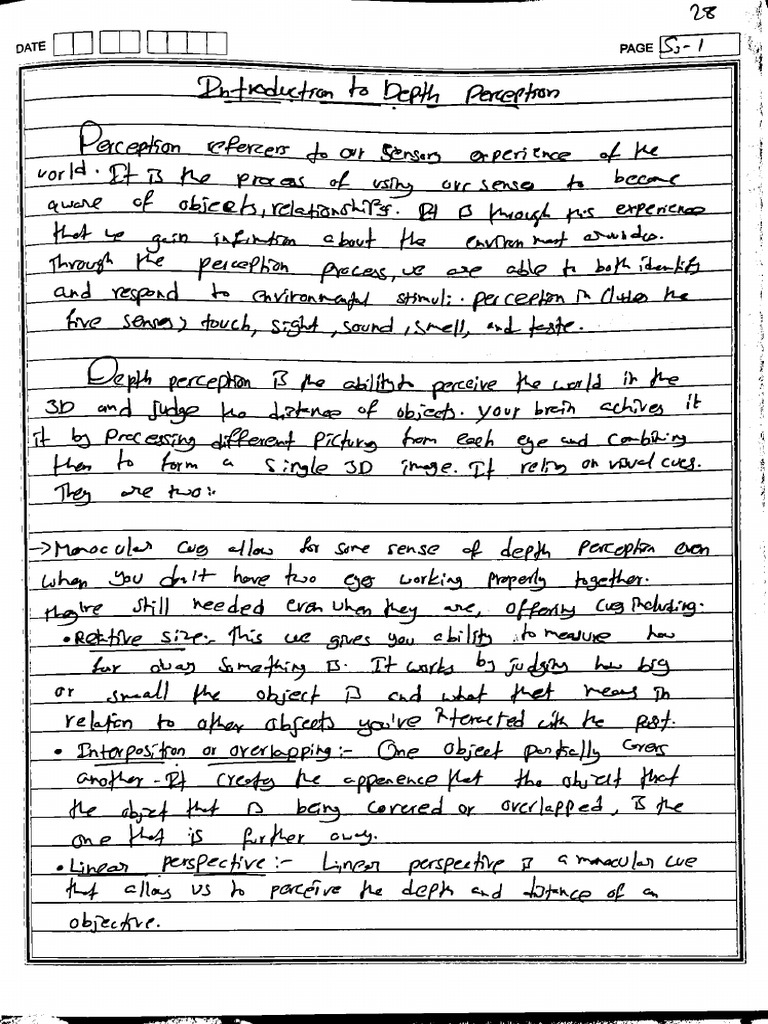 28
DATE
PAGE S3-1
Introduction to Depth Perception
Perception referers to our sensory experience of the
world. It is the process of using our sense to become
aware of objects, relationships. It is through this experience
that we gain about the environment
Through the perception process, we are able to both identify
and respond to environmental stimuli. perception includes the
five senses; touch, sight, sound, smell, and taste.
Depth perception is the ability to perceive the world in the
3D and judge the distance of objects. your brain achives it
it by processing different pictures from each eye and combining
them to form a single 3D image. It relies on visual cues.
They are two:-
→ Monocular cues allow for some sense of depth perception even
when you don't have two eyes working properly together.
they're still needed even when they are, offering cues including:
• Relative size:- This we gives you ability to measure how
far away something is. It works by judging how big
or small the object is and what that means in
relation to other objects you've interacted with the past.
• Interposition or overlapping:- One object partially covers
another - It creates the apperence that the object that
the object that is being covered or overlapped, is the
one that is further away.
• Linear perspective:- Linear perspective is a monocular cue
that allows us to perceive the depth and distance of an
objective.